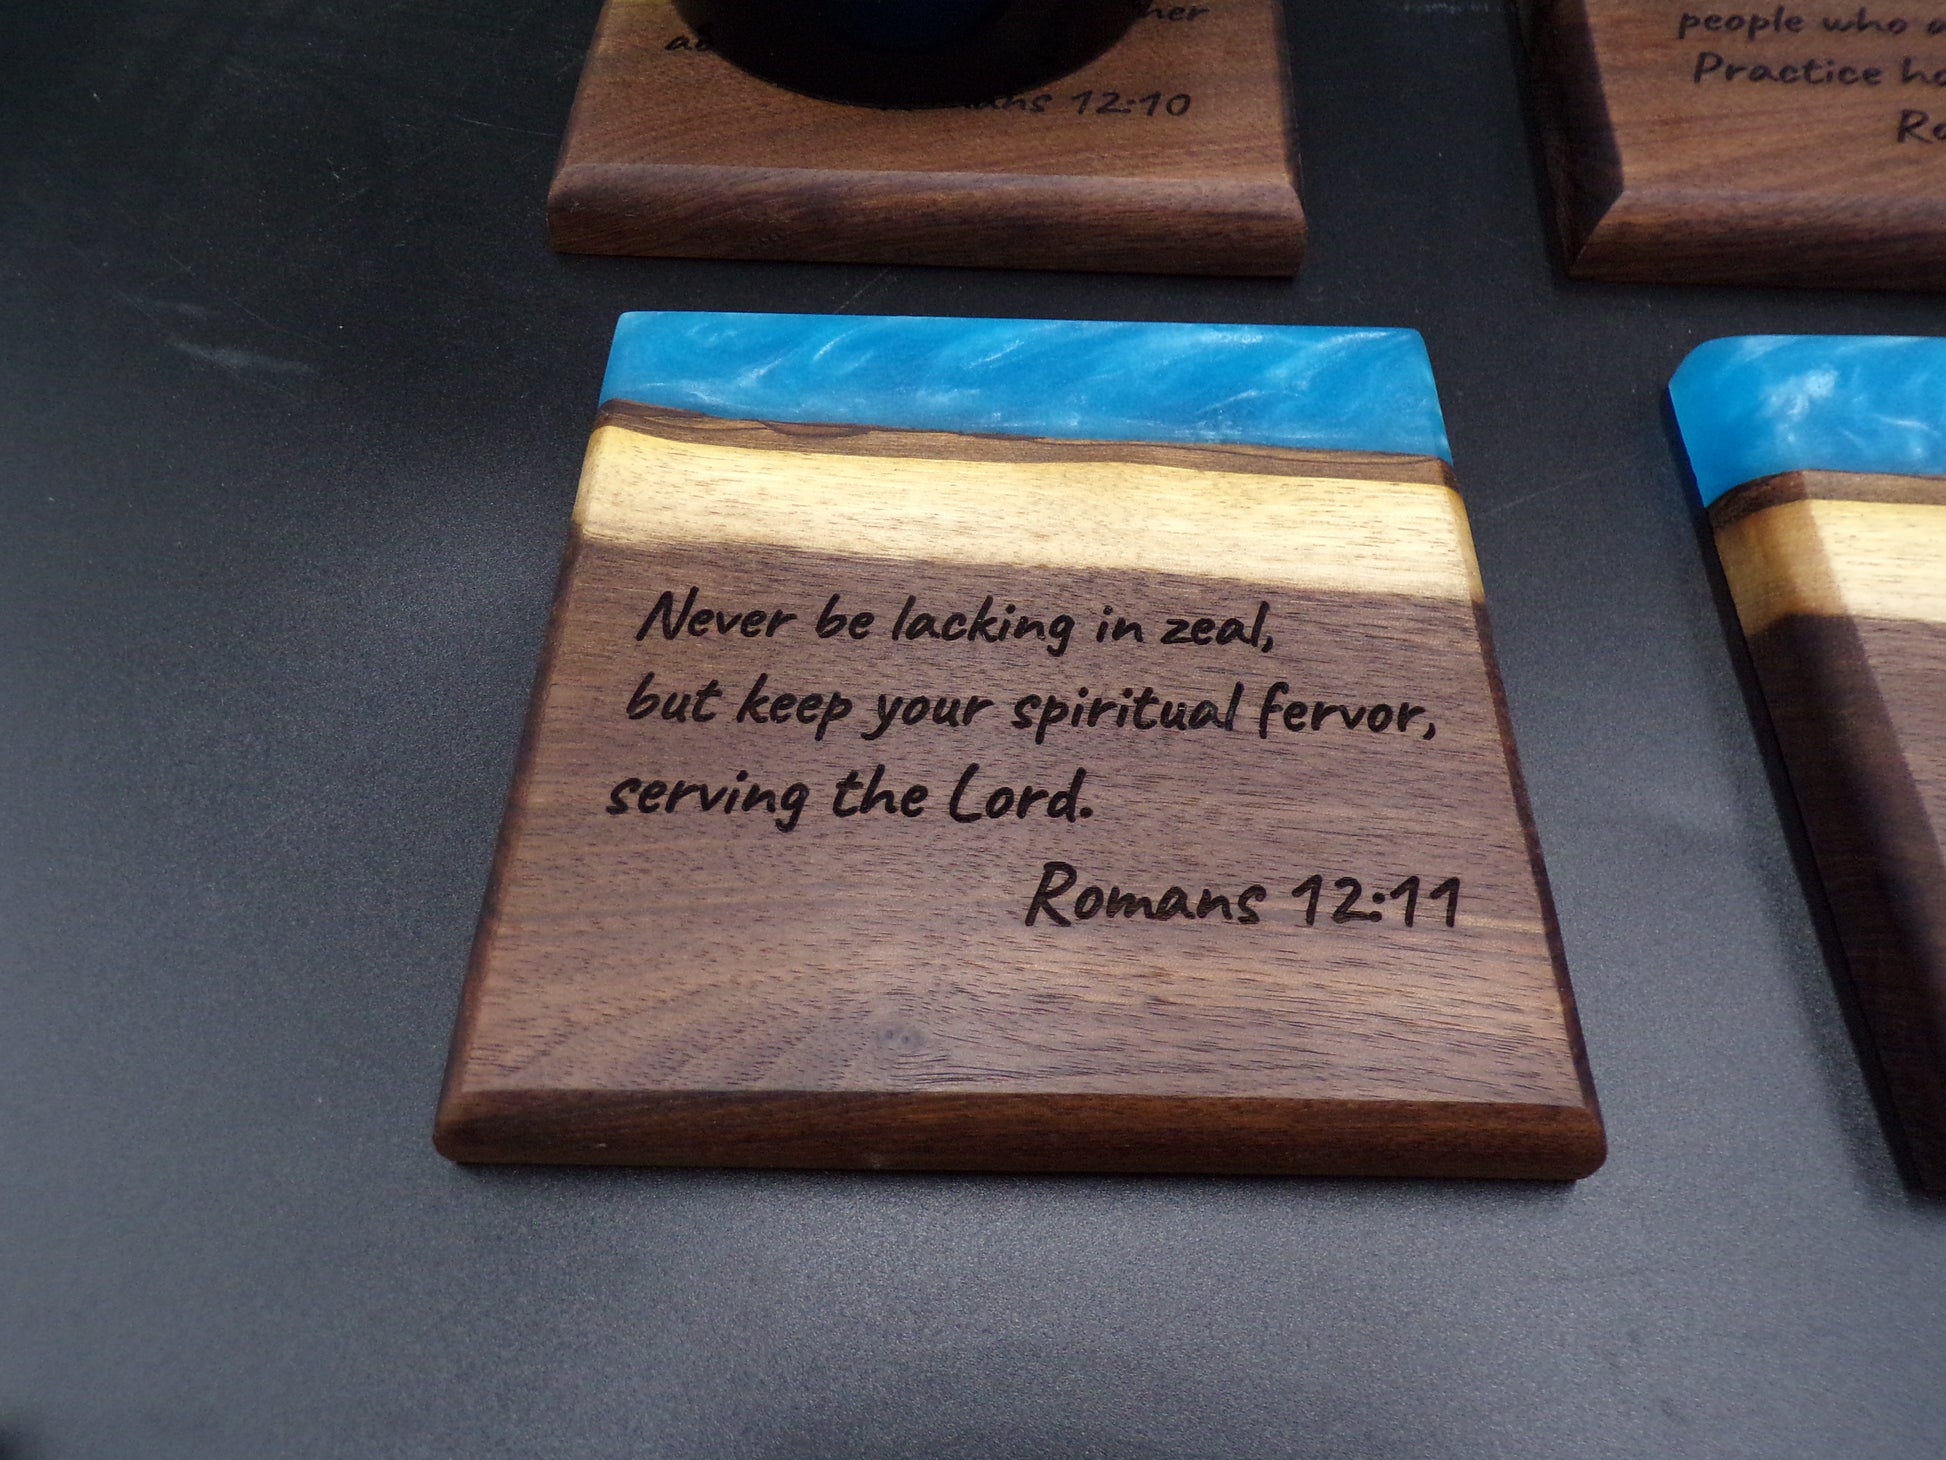 her
12:10
people who
Practice
Never be lacking in zeal,
but keep your spiritual fervor,
serving the Lord.
Romans 12:11